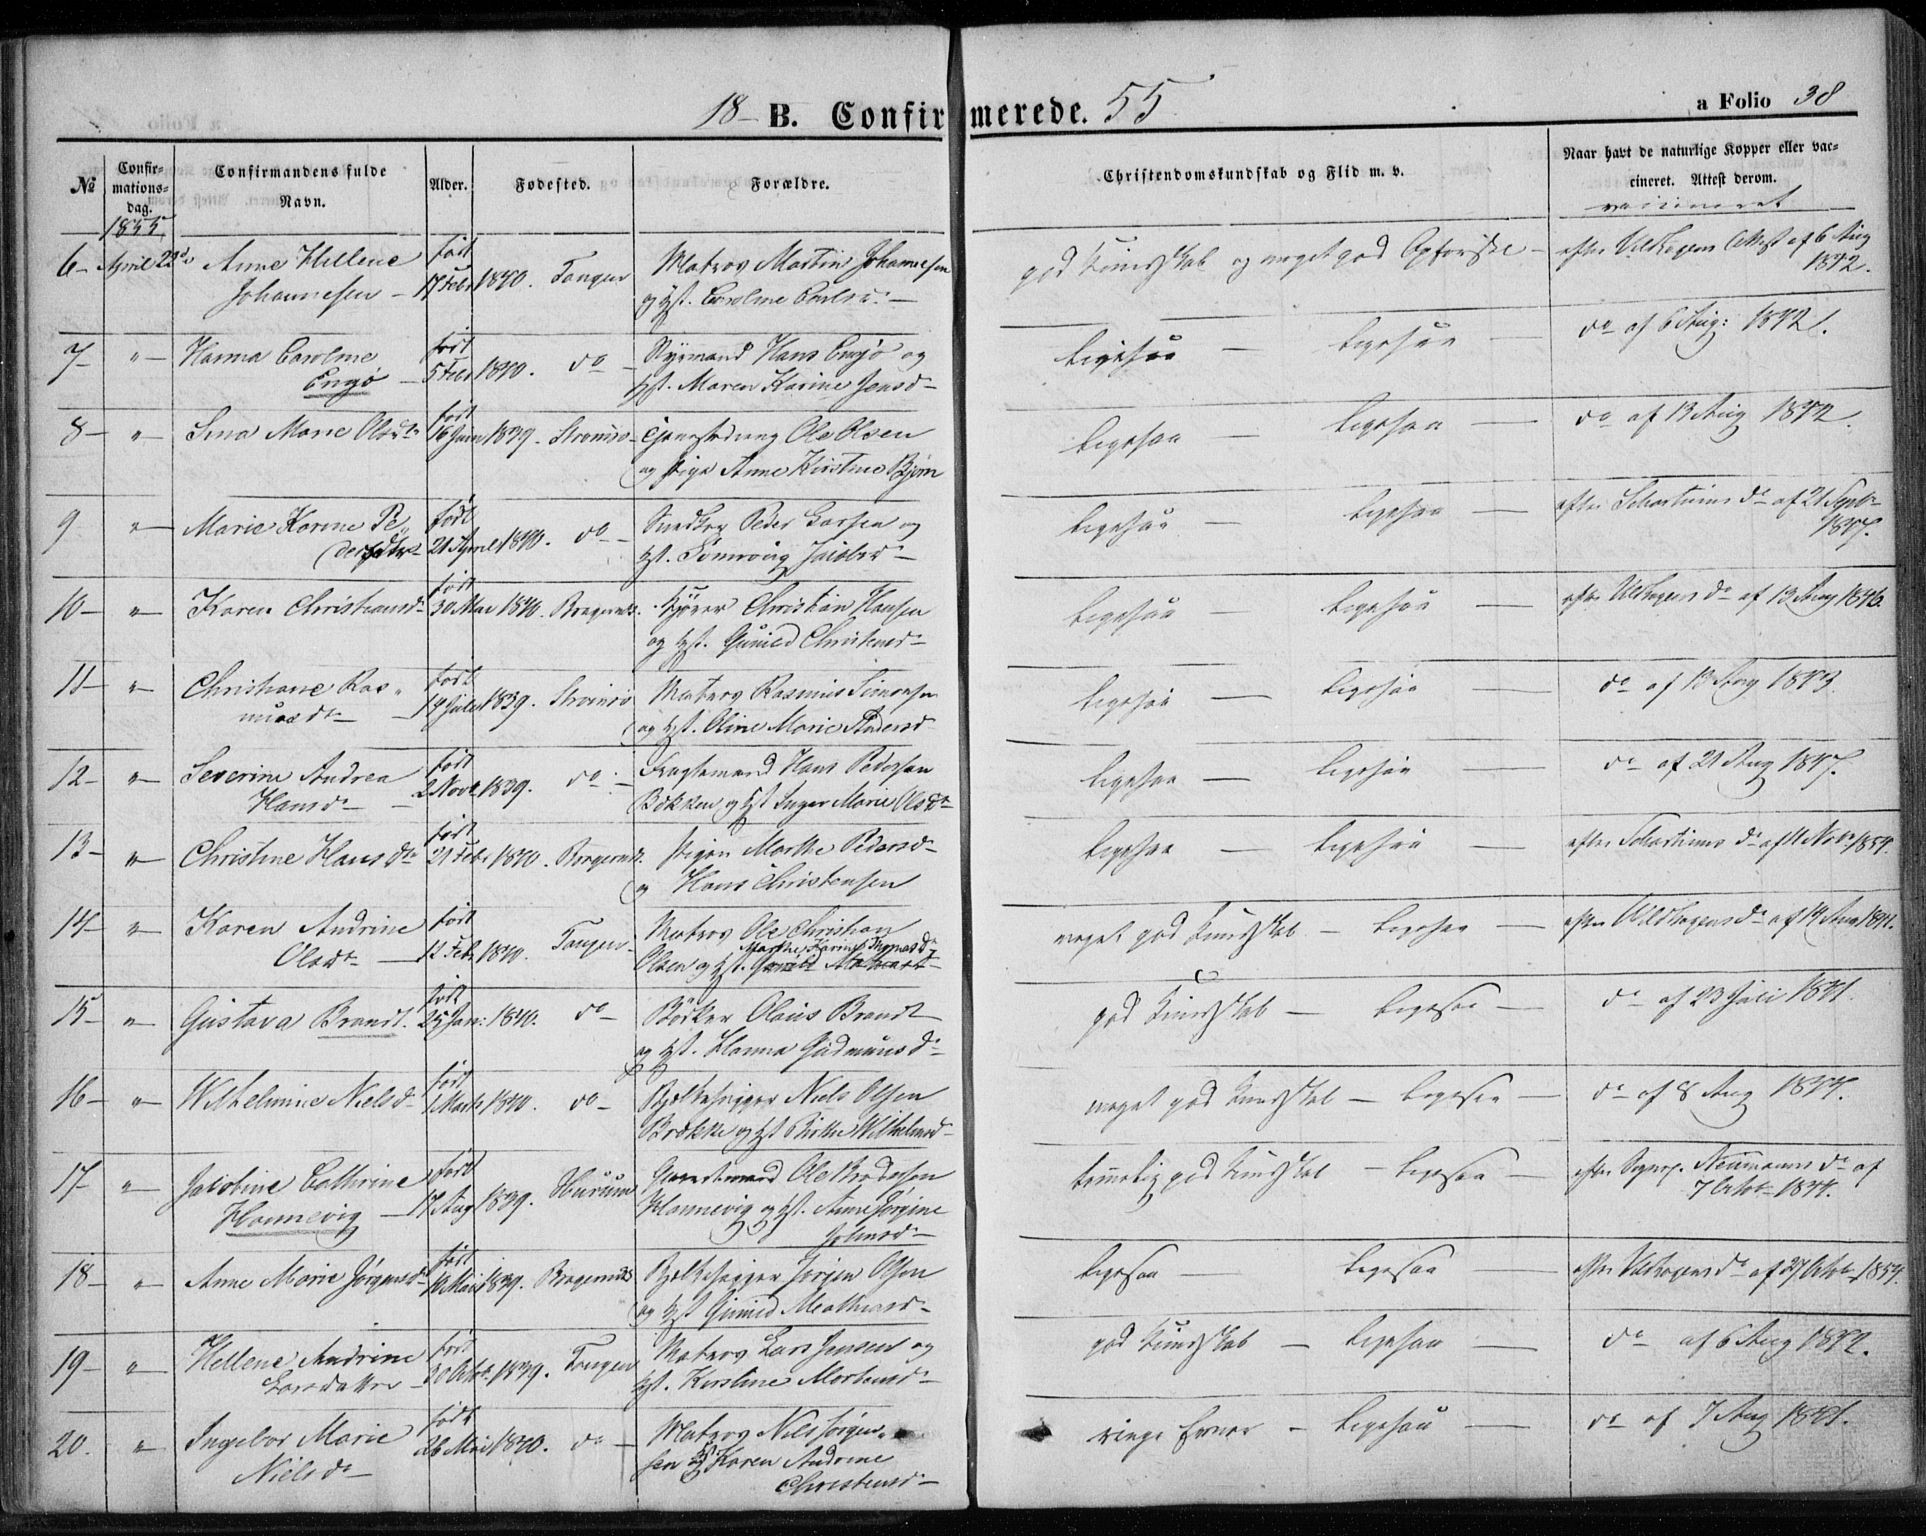 18- B. Confirmerede. 55
a Folio 38
№
Confir-
mations-
dag.
Confirmandens fulde
Navn.
Alder.
Fødested.
Forældre.
Christendomskundskab og Flid m. v.
Naar havt de naturlige Kopper eller vac-
cineret. Attest derom.
1855
vaccineret
6- April 22de Anne Hellene Johannesen - født 17 Febr 1840. Tangen Matros Martin Johannesen
og Hst. Caroline
god Kundskab og meget god Opførsel - efter Uchermanns Attest af 6 Aug 1842.
7- " Hanna Caroline Engø - født 5 Febr 1840. do - Styrmand Hans Engø og
Hst. Maren Karine Jensd-
ligesaa - ligesaa - do af 6 Aug: 1842.
8- " Sina Marie Olsdtr født 16 Juni 1839. Strømsø - Ole Olsen
og Pige Anne Kirstine Bjørn
ligesaa - ligesaa - do af 13 Aug 1842.
9 " Marie Karine Pedersdtr født 21 April 1840. do - Snedker Peder Larsen og
Hst. Jacobsd-
ligesaa - ligesaa - efter do af 21 Septbr
10- " Karen Christiansd- født 30 Mai 1840. Bragernæs. Christian Hansen
og Hst. Gunild Christensd-
ligesaa - ligesaa - do af 13 Aug 1846.
11- " Christiane Rasmusdt- født 14 Juli 1839. Strømsø Matros Rasmus Simonsen
og Hst. Oline Marie
ligesaa - ligesaa - do af 12 Aug 1843.
12- " Severine Andrea Hansdt- født 2 Novb. 1839. do - Fragtemand Hans Pedersen
Bækken og Hst Inger Marie Olsdtr
ligesaa - ligesaa - do af 21 Aug
13- " Christine Hansdtr født 21 Febr 1840. Bragernæs. Pigen Marthe Pedersd-
og Hans Christensen
ligesaa - ligesaa - efter do af 11 Novbr 1854.
14- " Karen Andrine Olsdt- født 12 Feb. 1840. Tangen - Matros Ole Christian
Marthe Karine
Olsen og Hst. Gunild
meget god Kundskab - ligesaa - efter do af
15- " Gustava Brandt. født 25 Jan: 1840. do - Bødker Olaus Brandt
og Hst. Hanna Gudmunsd-
god Kundskab - ligesaa - do af 23 Juli 1841.
16- " Wilhelmine Nielsd- født 1 Marts 1840. do - Niels Olsen
Brække og Hst Wilhelmsd-
meget god Kundskab - ligesaa - do af 8 Aug 1844.
17- " Jacobine Cathrine Hannevig - født 17 Aug 1839. Hurum Ole
Hannevig og Hst. Anne Jørgine
Johnsd-
temmelig god Kundskab - ligesaa - efter Neumanns do af
7 Octobr 1844.
18- " Anne Marie Jørgensdtr født 10 Mai 1839. Bragernæs Jørgen Olsen
og Hst Gunild Mathiasd-
ligesaa - ligesaa - efter do af 27 Octobr 1854.
19- " Hellene Andrine Larsdatter født 30 Octob. 1839. Tangen Matros Lars Jensen og
Hst. Kirstine Mortensd-
god Kundskab - ligesaa - do af 6 Aug 1842.
20. " Ingebor Marie Nielsdt- født 26 Mai 1840. do - Matros Nils Jørgen-
sen og Karen Andrine
Christensd-
ringe Evner - ligesaa - do af 7 Aug 1841.